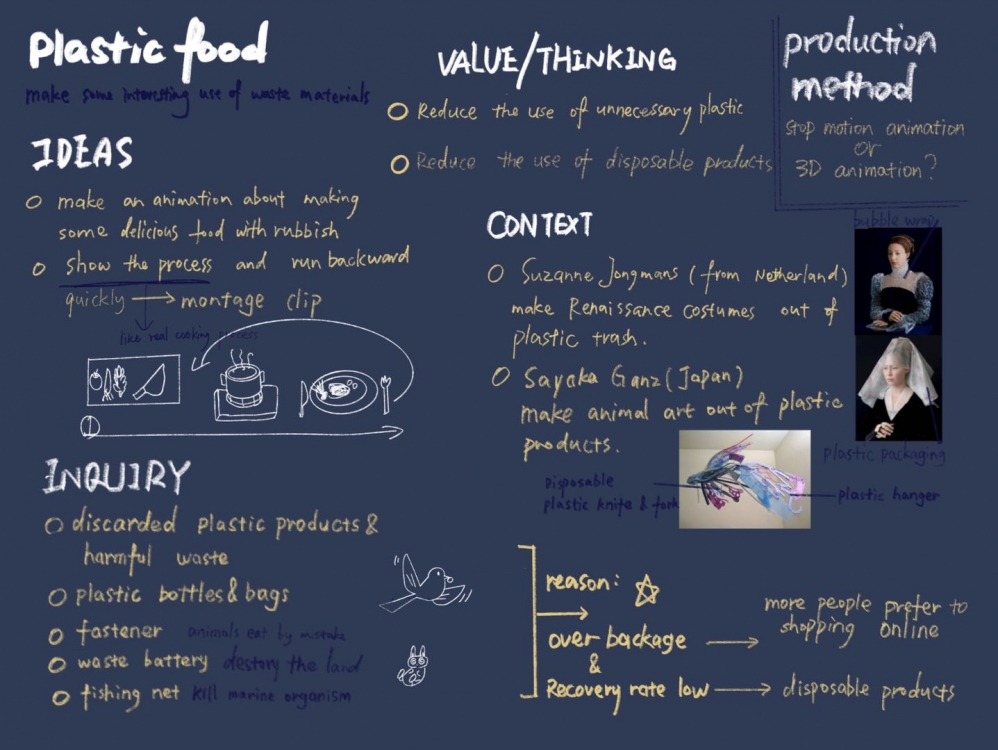 Plastic food
make some interesting use of waste materials
IDEAS
make an animation about making
some delicious food with rubbish
show the process and run backward
quickly → montage clip
like real cooking process
1
INQUIRY
discarded plastic products &
harmful waste
plastic bottles & bags
fastener animals eat by mistake
waste battery destory the land
fishing net kill marine organism
VALUE/THINKING
Reduce the use of unnecessary plastic
Reduce the use of disposable products
CONTEXT
Suzanne Jongmans (from Netherland)
make Renaissance costumes out of
plastic trash.
Sayaka Ganz (Japan)
make animal art out of plastic
products.
Disposable
plastic knife & fork
plastic hanger
bubble wrap
plastic packaging
production
method
stop motion animation
or
3D animation?
reason:
over backage → more people prefer to
shopping online
&
Recovery rate low → disposable products